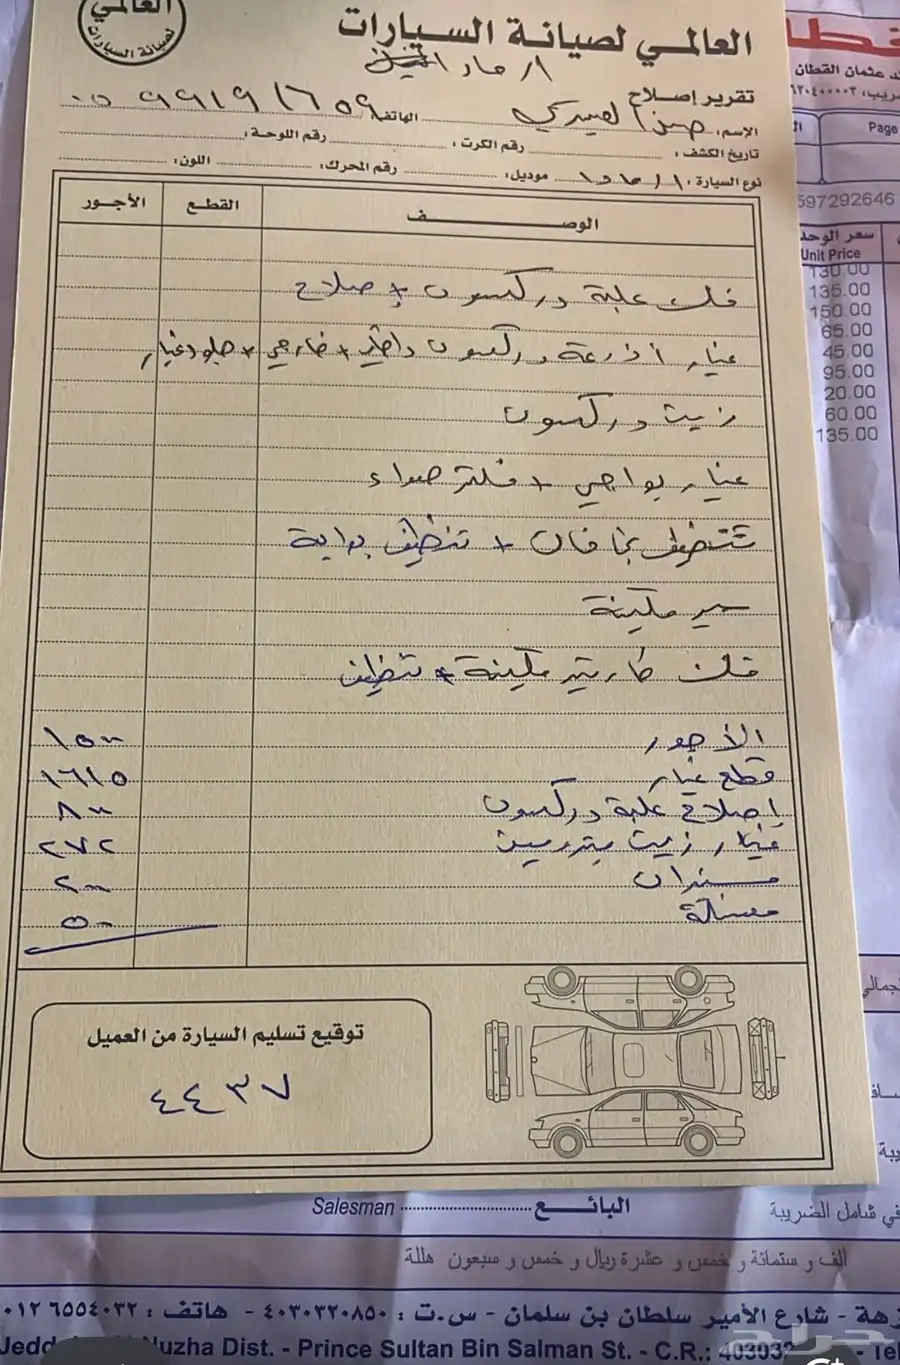 العالمي
لصيانة السيارات
العالمي لصيانة السيارات
تقرير إصلاح
الاسم: الهاتف: ٠٥٩٩١٩١٦٥٩
تاريخ الكشف: رقم الكرت: رقم اللوحة:
نوع السيارة: موديل: رقم المحرك: اللون:
الوصف القطع الأجور
فك علبة دركسون + إصلاح
غيار أذرعة دركسون داخلي + خارجي + جلود غيار
زيت دركسون
غيار بواجي + فلتر هواء
تنظيف بخاخات + تنظيف بوابة
سير مكينة
فك كارتير مكينة + تنظيف
الأجور ١٥٠٠
قطع غيار ١٦١٥
إصلاح علبة دركسون ٨٠٠
غيار زيت بترومين ٢٧٢
مسندان ٢٠٠
مغسلة ٥٠
توقيع تسليم السيارة من العميل
٤٤٣٧
عثمان القطان
Page
597292646
سعر الوحدة
Unit Price
130.00
135.00
150.00
65.00
45.00
95.00
20.00
60.00
135.00
Salesman البائـــع
في شامل الضريبة
الف و ستمائة و خمس و عشرة ريال و خمس و سبعون هللة
شارع الأمير سلطان بن سلمان - س.ت : ٤٠٣٠٣٢٠٨٥٠ - هاتف : ٠١٢٦٥٥٤٠٣٢
Nuzha Dist. - Prince Sultan Bin Salman St. - C.R.: 403032
حراج